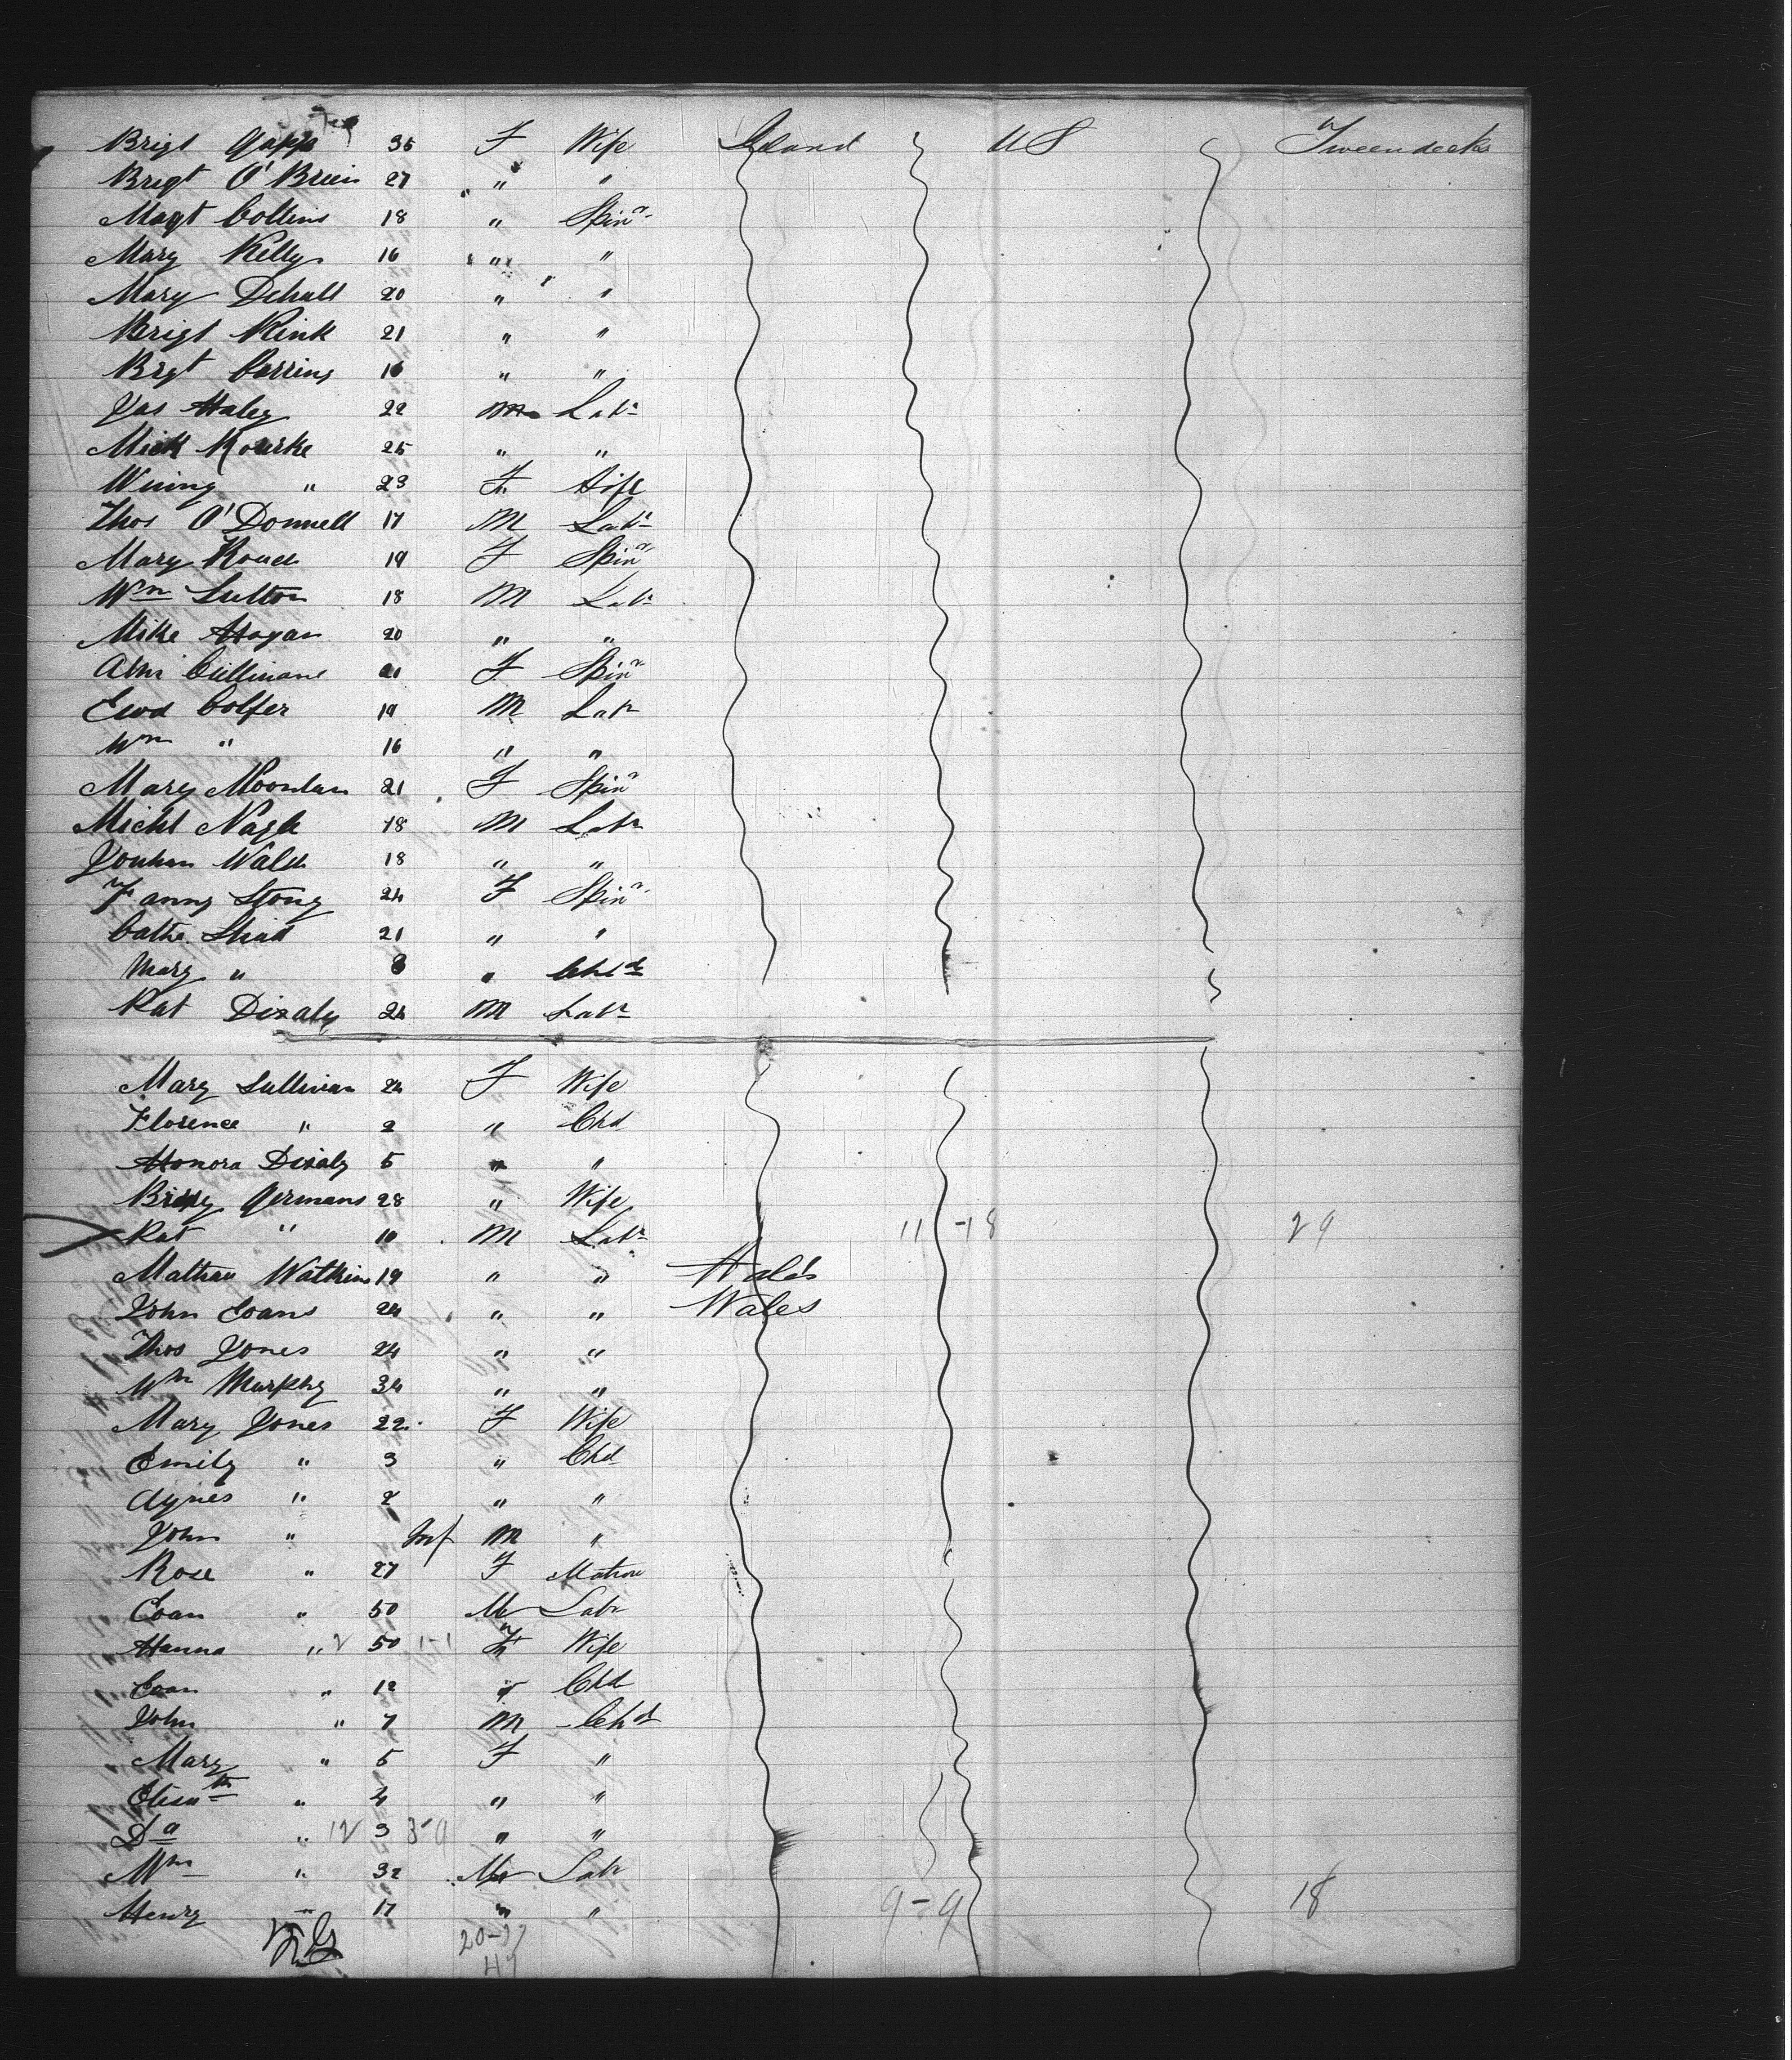 Brigt Gapps 35 F Wife Ireland US Tweendecks
Brigt O'Brien 27 " "
Magt Collins 18 " Spinr
Mary Kelly 16 " "
Mary Schall 20 " "
Brigt Kink 21 " "
Brgt Carrins 16 " "
Jas Haley 22 M Labr
Mick Rourke 25 " "
Wining " 23 F Wife
Thos O'Donnell 17 M Labr
Mary 19 F Spinr
Wm Sutton 18 M Labr
Mike Hogan 20 " "
Cullinane 21 F Spinr
Ewd Colfer 19 M Labr
Wm " 16 " "
Mary Moonlan 21 F Spinr
Michl Nagle 18 M Labr
Walsh 18 " "
Fanny Stong 24 F Spinr
Cathe 21 " "
Mary " 8 " Chld
Pat Dixaly 24 M Labr
Mary Sullivan 24 F Wife
Florence " 2 " Chd
Honora Dixaly 5 " "
Germans 28 " Wife
Pat " 10 M Labr 11 -18 29
Mathew Watkins 19 " " Wales
John Evans 24 " " Wales
Thos Jones 24 " "
Wm Murphy 34 " "
Mary Jones 22 F Wife
Emily " 3 " Chd
Agnes " 2 " "
John " Inf M "
Rose " 27 F Matron
Evan " 50 M Labr
Hanna " 2 50 1-1 F Wife
Evan " 12 " Chd
John " 7 M Chld
Mary " 5 F "
Elisath " 4 " "
Da " 12 3 8-9 " "
Wm " 32 M Labr
Henry " 17 " " 9-9 18
20-27
47